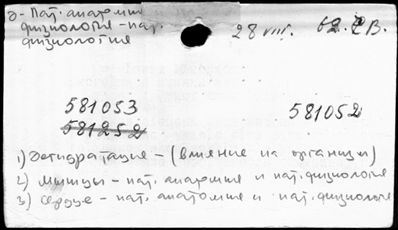 д - Пат. анатомия
физиология - пат.
физиология
28 VIII. 62. г В.
581053 581052
581252
1) Дегидратация - (влияние на организм)
2) Мышцы - пат. анатомия и пат. физиология
3) Сердце - пат. анатомия и пат. физиология